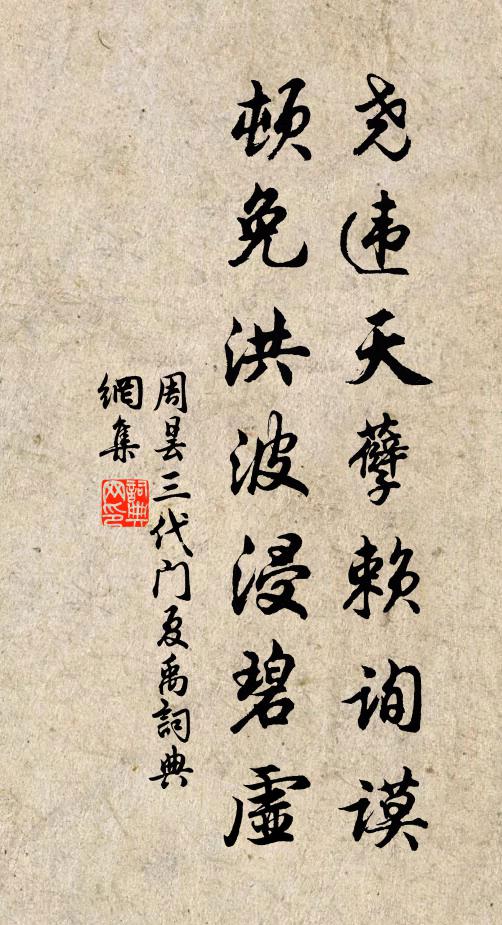 尧违天孽赖询谟
顿免洪波浸碧虚
周昙三代门夏禹詞典
網集
詞典网印